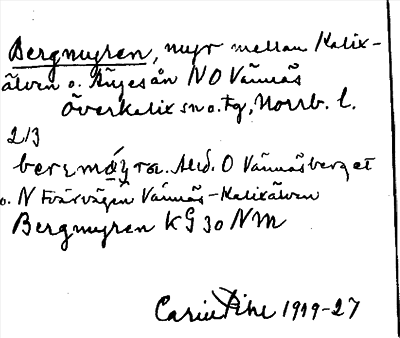 Bergmyren, myr mellan Kalix-
älven o. Ängesån NO Vännäs
Överkalix sn o. tg, Norrb. l.
2/3
O Vännäsberget
o. N tvärvägen Vännäs-Kalixälven
Bergmyren KG 30 NM
Carin Pihl 1919-27